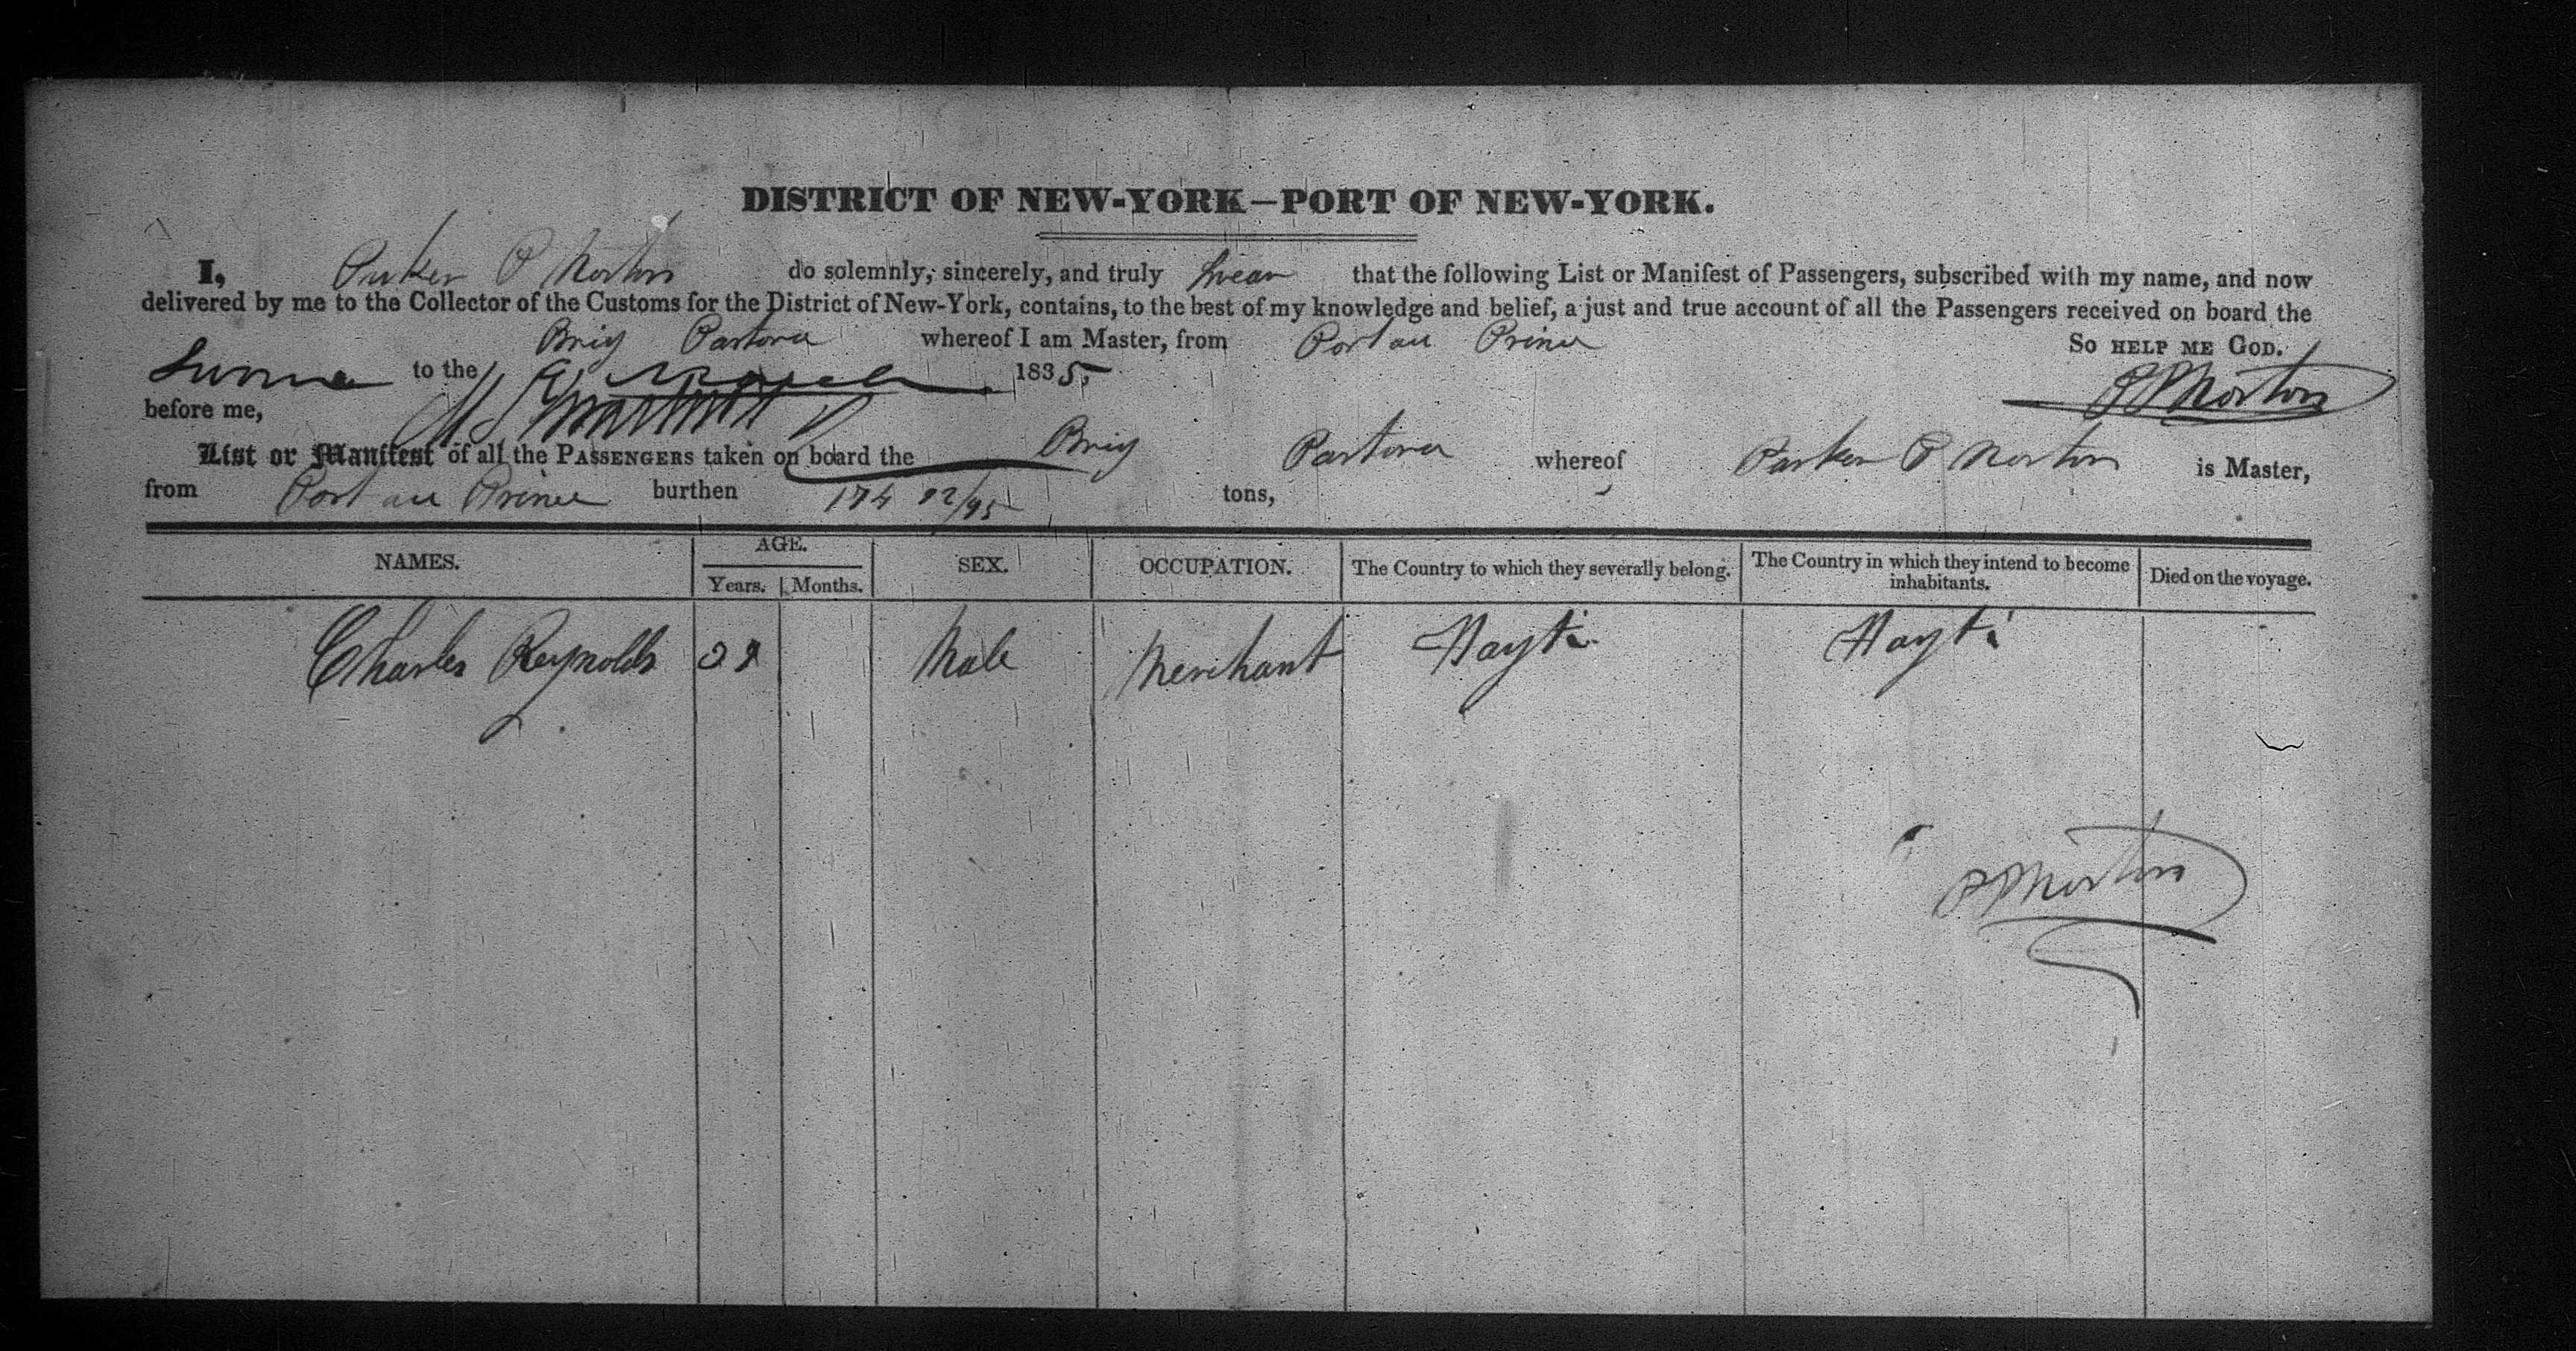 DISTRICT OF NEW-YORK—PORT OF NEW-YORK.
I, Parker P Norton do solemnly, sincerely, and truly swear that the following List or Manifest of Passengers, subscribed with my name, and now
delivered by me to the Collector of the Customs for the District of New-York, contains, to the best of my knowledge and belief, a just and true account of all the Passengers received on board the
Brig Pastora whereof I am Master, from Port au Prince So HELP ME GOD.
to the 1835.
P P Norton
before me,
List or Manifest of all the PASSENGERS taken on board the Brig Pastora whereof Parker P Norton is Master,
from Port au Prince burthen 174 92/95 tons,
NAMES. AGE. SEX. OCCUPATION. The Country to which they severally belong. The Country in which they intend to become inhabitants. Died on the voyage.
Years. Months.
Charles Reynolds Male Merchant Hayti Hayti
P P Norton